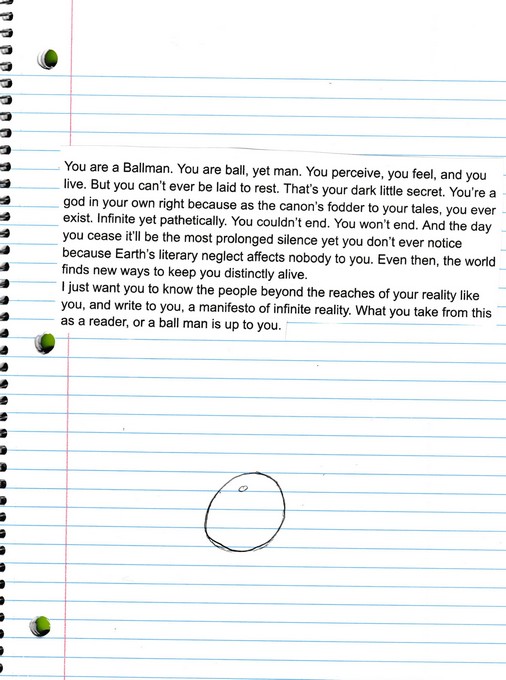 You are a Ballman. You are ball, yet man. You perceive, you feel, and you
live. But you can't ever be laid to rest. That's your dark little secret. You're a
god in your own right because as the canon's fodder to your tales, you ever
exist. Infinite yet pathetically. You couldn't end. You won't end. And the day
you cease it'll be the most prolonged silence yet you don't ever notice
because Earth's literary neglect affects nobody to you. Even then, the world
finds new ways to keep you distinctly alive.
I just want you to know the people beyond the reaches of your reality like
you, and write to you, a manifesto of infinite reality. What you take from this
as a reader, or a ball man is up to you.